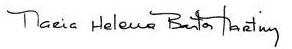 Maria Helena Bastos Martins